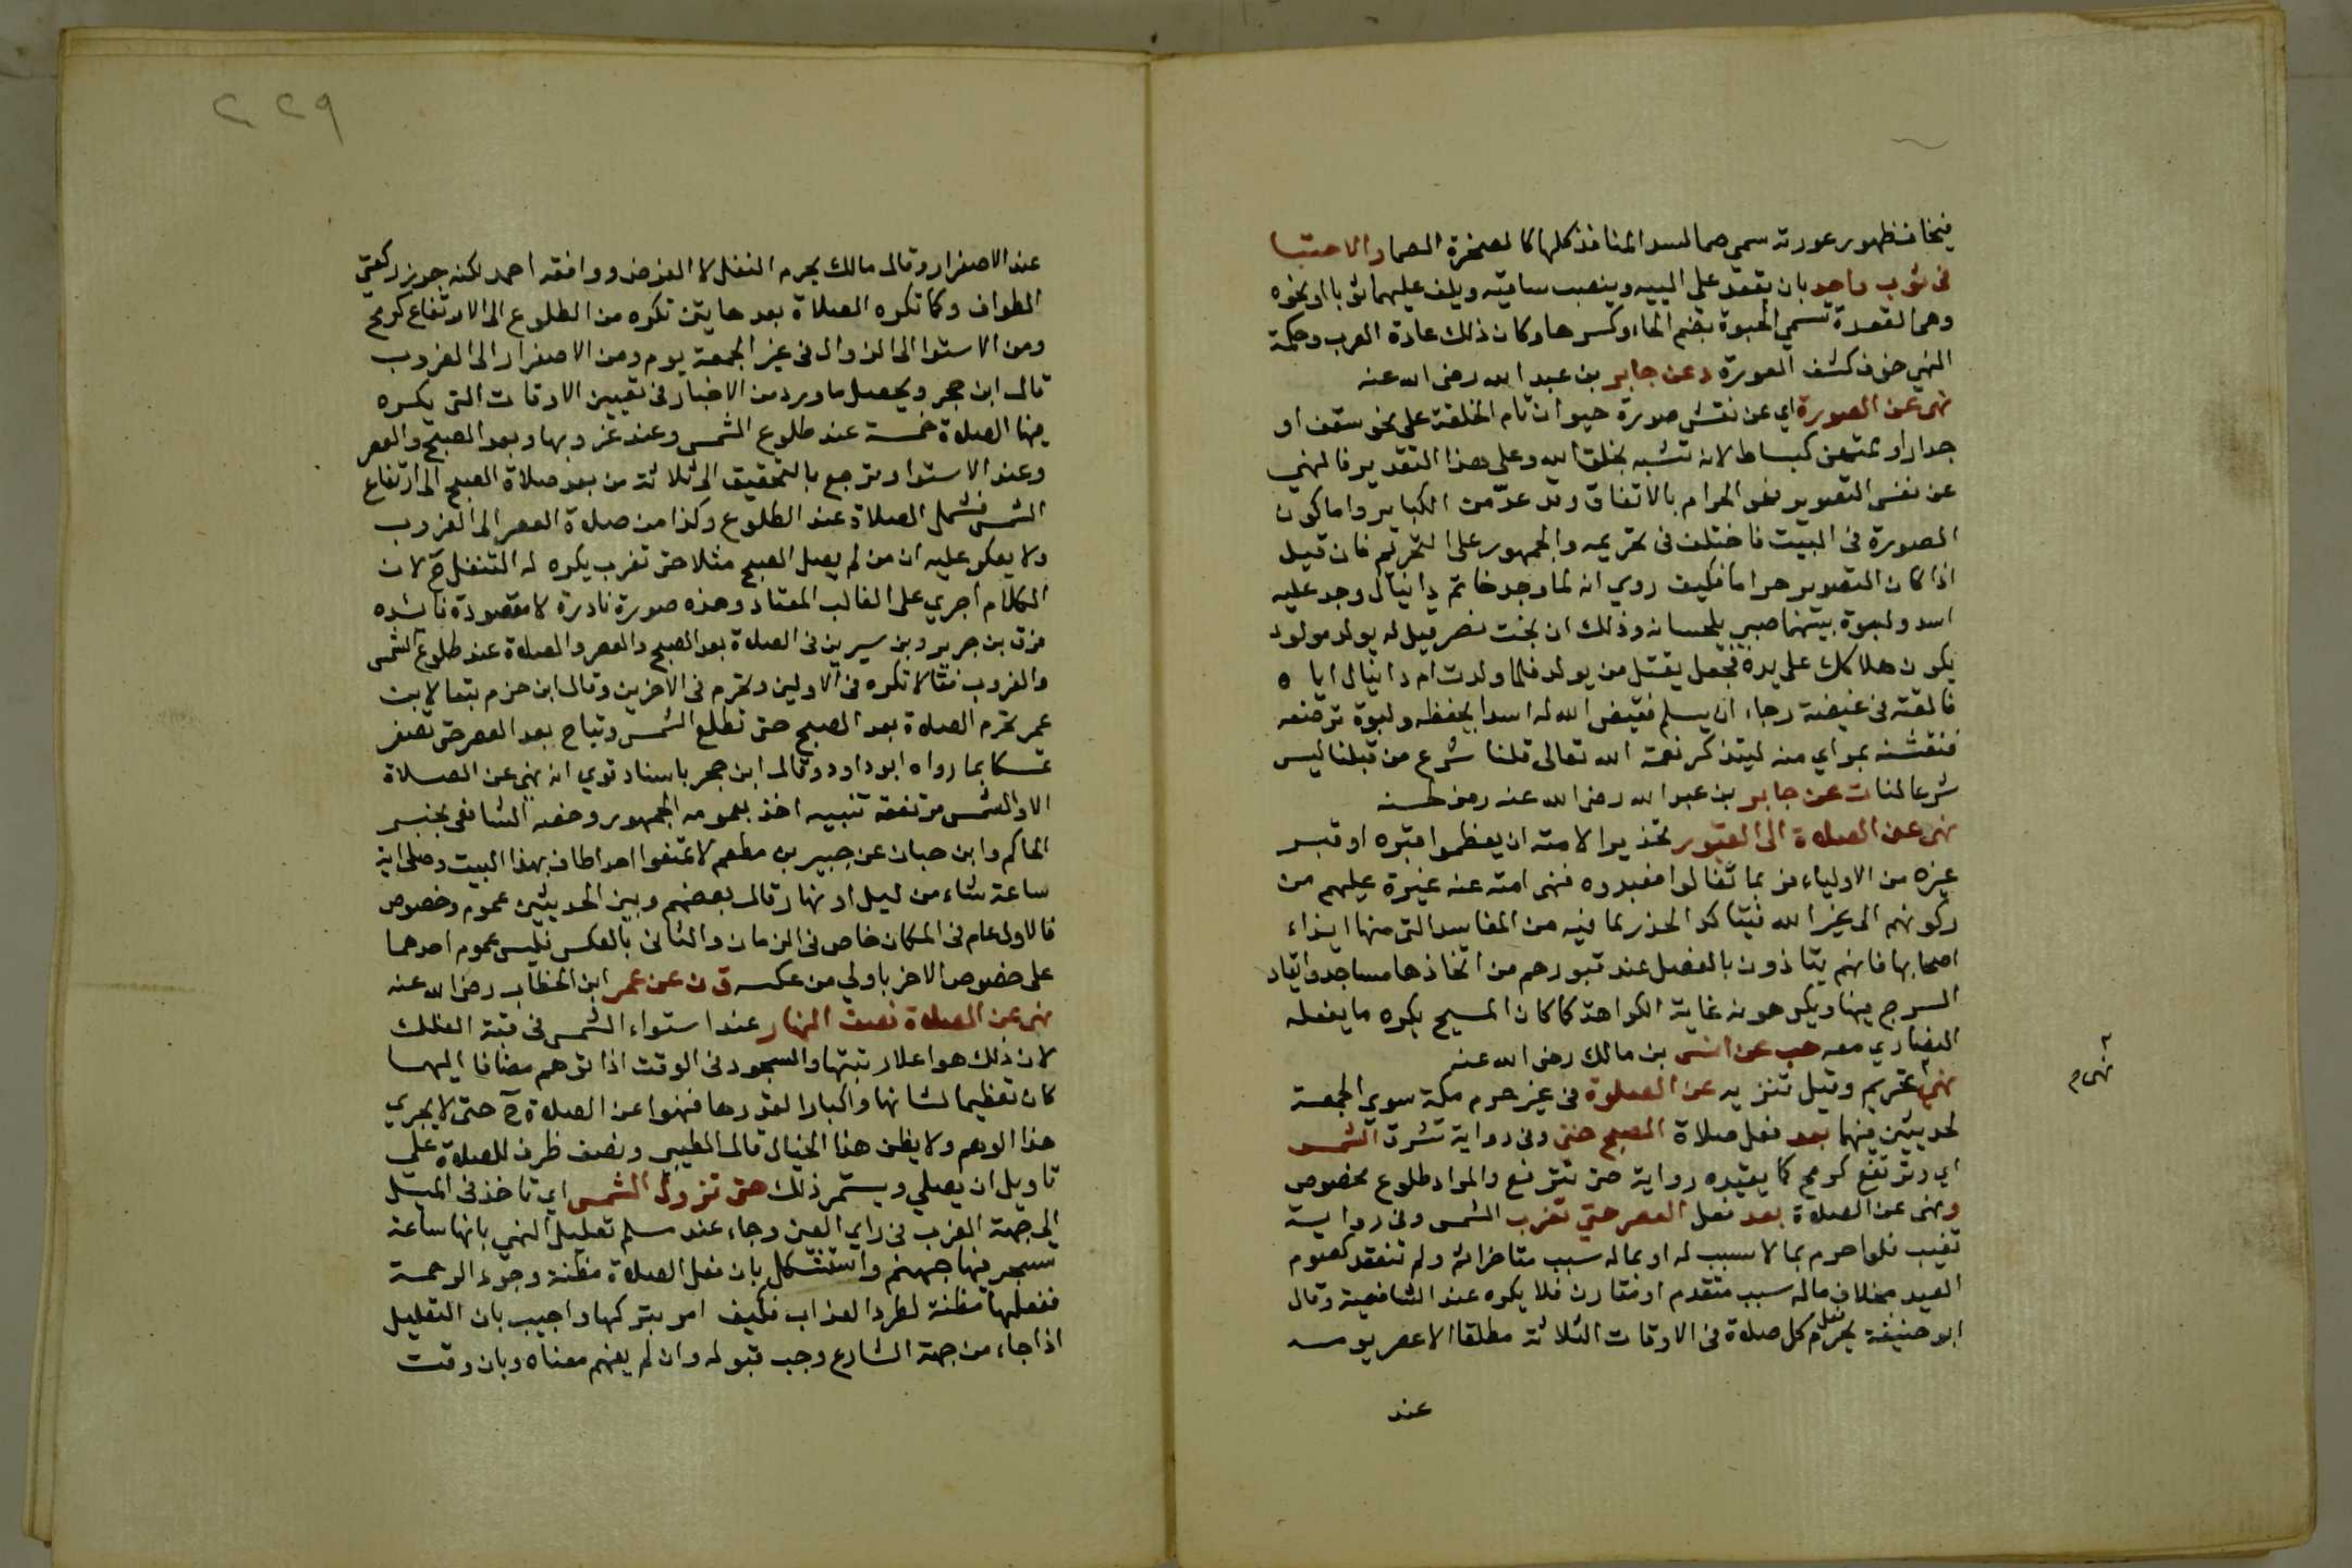 فيخاف ظهور عورته سمي صما لسد المنافذ كلها كالصخرة الصما والاحتبا
في ثوب واحد بان يقعد علي الييه وينصب ساقيه ويلف عليهما ثوبا او نحوه
وهي القعدة تسمي الحبوة بضم الحاء وكسرها وكان ذلك عادة العرب وحكمة
النهي خوف كشف العورة د عن جابر بن عبد الله رضي الله عنه
نهى عن الصورة اي عن نقش صورة حيوان تام الخلقة على نحو سقف او
جدار او ممتهن كبساط لانه تشبه بخلق الله وعلى هذا التقدير فالنهي
عن نفس التصوير فهو الحرام بالاتفاق وقد عدّ من الكباير واما كون
الصورة في البيت فاختلف في تحريمه والجمهور على التحريم فان قيل
اذا كان التصوير حراما فكيف روي انه لما وجد خاتم دانيال وجد عليه
اسد ولبوة بينهما صبي يلحسانه وذلك ان بخت نصر قيل له يولد مولود
يكون هلاكك على يده فجعل يقتل من يولد فلما ولدت ام دانيال اياه
فالقته في غيضة رجاء ان يسلم فقيض الله له اسدا يحفظه ولبوة ترضعه
فنقشه بمراي منه ليتذكر نعمة الله تعالى قلنا شرع من قبلنا ليس
شرعا لنا ت عن جابر بن عبد الله رضي الله عنه رمز لحسنه
نهى عن الصلاة الى القبور تحذيرا لامته ان يعظموا قبره او قبر
غيره من الاولياء فربما تغالوا فعبدوه فنهى امته عنه غيرة عليهم من
ركونهم الى غير الله فيتاكد الحذر لما فيه من المفاسد التي منها ايذاء
اصحابها فانهم يتاذون بالفعل عند قبورهم من اتخاذها مساجد وايقاد
السرج فيها ويكرهونه غاية الكراهة كما كان المسيح يكره ما يفعله
النصاري معه حب عن انس بن مالك رضي الله عنه
نهي تحريم وقيل تنزيه عن الصلوة في غير حرم مكة سوي الجمعة
لحديثين فيهما بعد فعل صلاة الصبح حتى وفي رواية تشرق الشمس
اي وترتفع كرمح كما يقيده رواية حتى ترتفع والمراد طلوع مخصوص
ونهى عن الصلاة بعد فعل العصر حتى تغرب الشمس وفي رواية
تغيب فلو احرم بما لا سبب له او بما له سبب متاخر اثم ولم تنعقد كصوم
العيد بخلاف ما له سبب متقدم او مقارن فلا يكره عند الشافعية وقال
ابو حنيفة يحرم فعل كل صلاة في الاوقات الثلاثة مطلقا الا عصر يومه
عند
نهى م
٢٢٩
عند الاصفرار وقال مالك يحرم النفل لا الفرض ووافقه احمد لكنه جوز ركعتي
الطواف وكما تكره الصلاة بعد هاتين تكره من الطلوع الى الارتفاع كرمح
ومن الاستوا الى الزوال في غير الجمعة يوم ومن الاصفرار الى الغروب
قال ابن حجر ويحصل ما ورد من الاخبار في تعيين الاوقات التي يكره
فيها الصلاة خمسة عند طلوع الشمس وعند غروبها وبعد الصبح والعصر
وعند الاستوا وترجع بالتحقيق الى ثلاثة من بعد صلاة الصبح الى ارتفاع
الشمس فشمل الصلاة عند الطلوع وكذا من صلاة العصر الى الغروب
ولا يعكر عليه ان من لم يصل الصبح مثلا حتى تغرب يكره له التنفل ح لان
الكلام اجري على الغالب المعتاد وهذه صورة نادرة لا مقصودة فائدة
فرق بن جرير وبن سيرين في الصلاة بعد الصبح والعصر والصلاة عند طلوع الشمس
والغروب فقالا تكره في الاولين وتحرم في الاخرين وقال ابن حزم تبعا لابن
عمر تحرم الصلاة بعد الصبح حتى تطلع الشمس وتباح بعد العصر حتى تصفر
تمسكا بما رواه ابو داود وقال ابن حجر باسناد قوي انه نهي عن الصلاة
الا والشمس مرتفعة تنبيه اخذ بعمومه الجمهور وخصه الشافعي بخبر
الحاكم وابن حبان عن جبير بن مطعم لا تمنعوا احدا طاف بهذا البيت وصلى اية
ساعة شاء من ليل او نهار قال بعضهم وبين الحديثين عموم وخصوص
فالاول عام في المكان خاص في الزمان والثاني بالعكس فليس عموم احدهما
على خصوص الاخر باولي من عكسه ق ن عن عمر ابن الخطاب رضي الله عنه
نهى عن الصلاة نصف النهار عند استواء الشمس في قبة الفلك
لان ذلك هو اعلا رتبتها والسجود في الوقت اذا توهم مضافا اليها
كان تعظيما لشانها واكبارا لقدرها فنهوا عن الصلاة ح حتى لا يجري
هذا الوهم ولا يظن هذا الخيال قال الطيبي ونصف ظرف للصلاة على
تاويل ان يصلي ويستمر ذلك حتى تزول الشمس اي تاخذ في الميل
الى جهة الغرب في راي العين وجاء عند مسلم تعليل النهي بانها ساعة
تسجر فيها جهنم واستشكل بان فعل الصلاة مظنة وجود الرحمة
ففعلها مظنة لطرد العذاب فكيف امر بتركها واجيب بان التعليل
اذا جاء من جهة الشارع وجب قبوله وان لم يفهم معناه وبان وقت